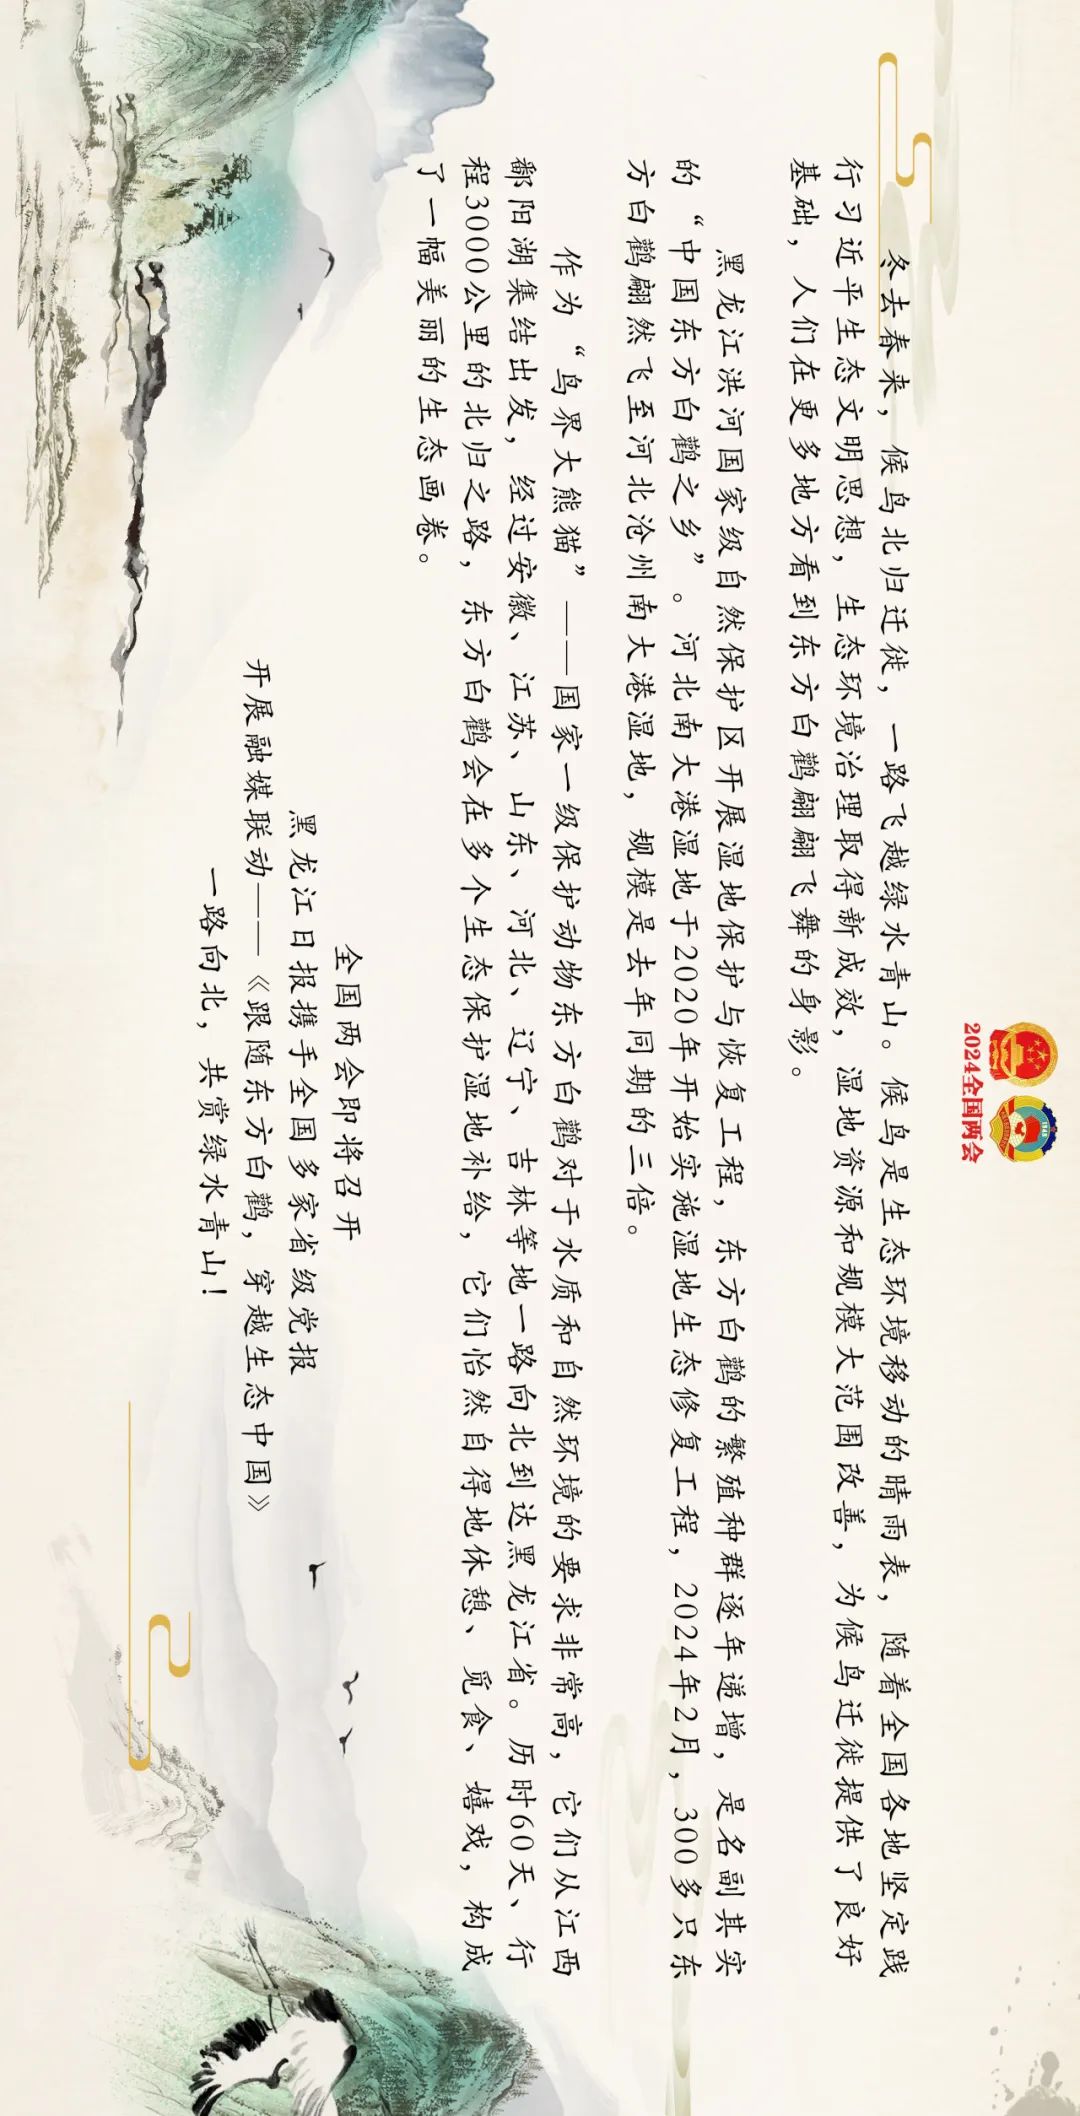 2024全国两会
冬去春来，候鸟北归迁徙，一路飞越绿水青山。候鸟是生态环境移动的晴雨表，随着全国各地坚定践
行习近平生态文明思想，生态环境治理取得新成效，湿地资源和规模大范围改善，为候鸟迁徙提供了良好
基础，人们在更多地方看到东方白鹳翩翩飞舞的身影。
黑龙江洪河国家级自然保护区开展湿地保护与恢复工程，东方白鹳的繁殖种群逐年递增，是名副其实
的“中国东方白鹳之乡”。河北南大港湿地于2020年开始实施湿地生态修复工程，2024年2月，300多只东
方白鹳翩然飞至河北沧州南大港湿地，规模是去年同期的三倍。
作为“鸟界大熊猫”——国家一级保护动物东方白鹳对于水质和自然环境的要求非常高，它们从江西
鄱阳湖集结出发，经过安徽、江苏、山东、河北、辽宁、吉林等地一路向北到达黑龙江省。历时60天、行
程3000公里的北归之路，东方白鹳会在多个生态保护湿地补给，它们怡然自得地休憩、觅食、嬉戏，构成
了一幅美丽的生态画卷。
全国两会即将召开
黑龙江日报携手全国多家省级党报
开展融媒联动——《跟随东方白鹳，穿越生态中国》
一路向北，共赏绿水青山！